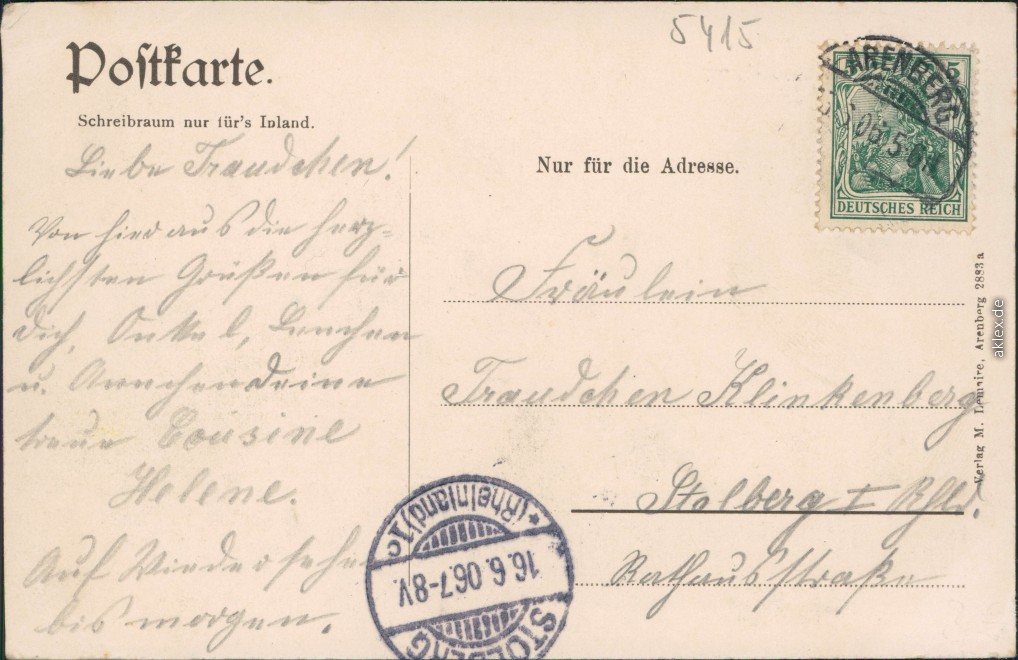 5415
Postkarte.
Schreibraum nur für's Inland.
Nur für die Adresse.
ARENBERG
5
DEUTSCHES REICH
Liebe Traudchen!
Von hier aus die herz-
lichsten Grüßen für
dich, Onkel, Lenchen
u. Annchen Deine
treue Cousine
Helene.
Auf Wiedersehn
bis morgen.
Fräulein
Traudchen Klinkenberg
Stolberg I Rhld.
Rathausstraße
STOLBERG
16.6.06.7-8V
*(Rheinland)1
Verlag M. Lemaire, Arenberg 2883a
aklex.de